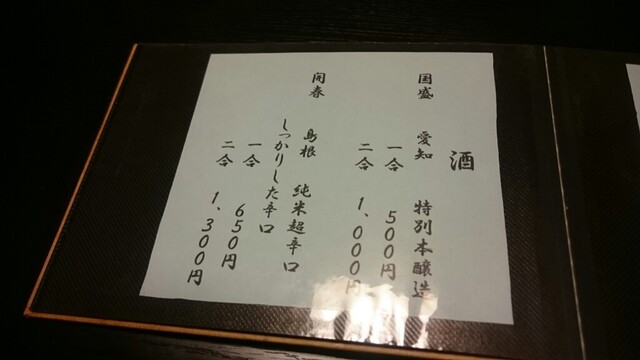 酒
国盛 愛知 特別本醸造
一合 500円
二合 1、000円
開春 島根 純米超辛口
しっかりした辛口
一合 650円
二合 1、300円